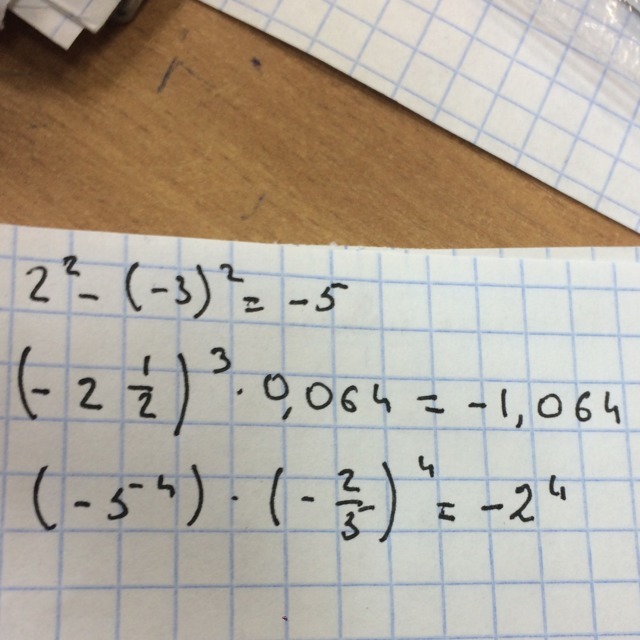 2² - (-3)² = -5
(-2 1/2)³ · 0,064 = -1,064
(-5⁴) · (-2/5)⁴ = -2⁴